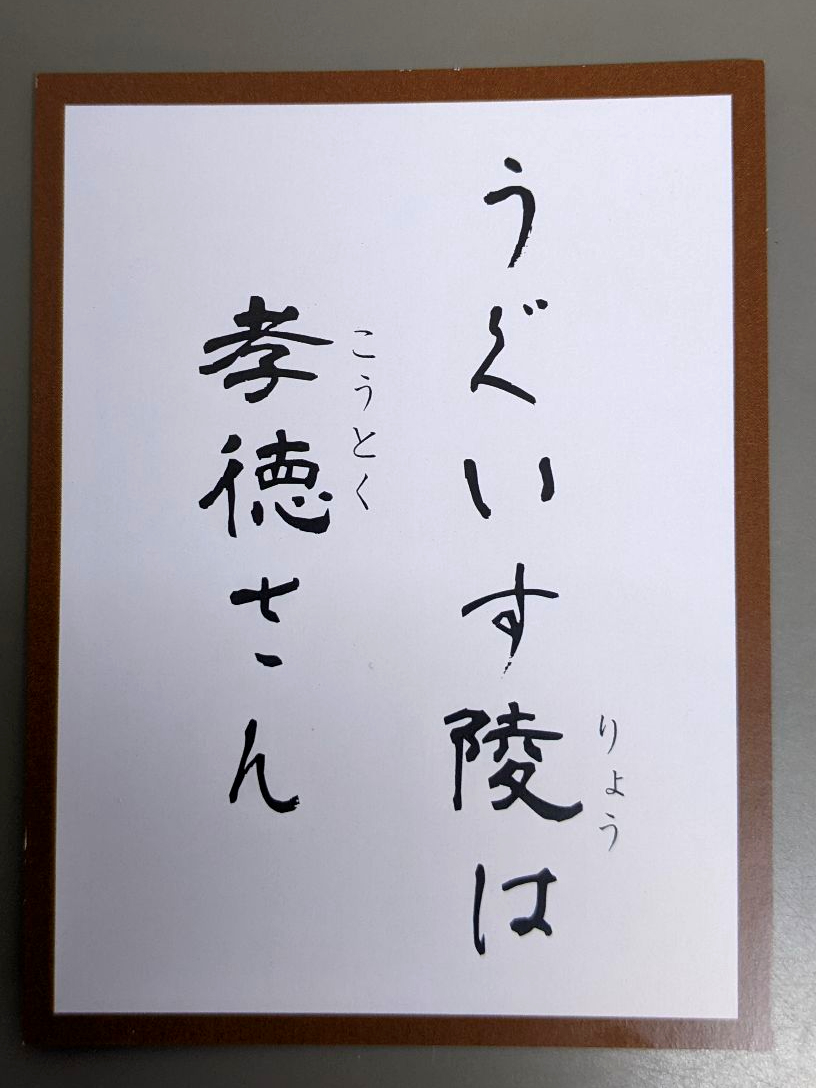 うぐいす陵は
りょう
孝徳さん
こうとく